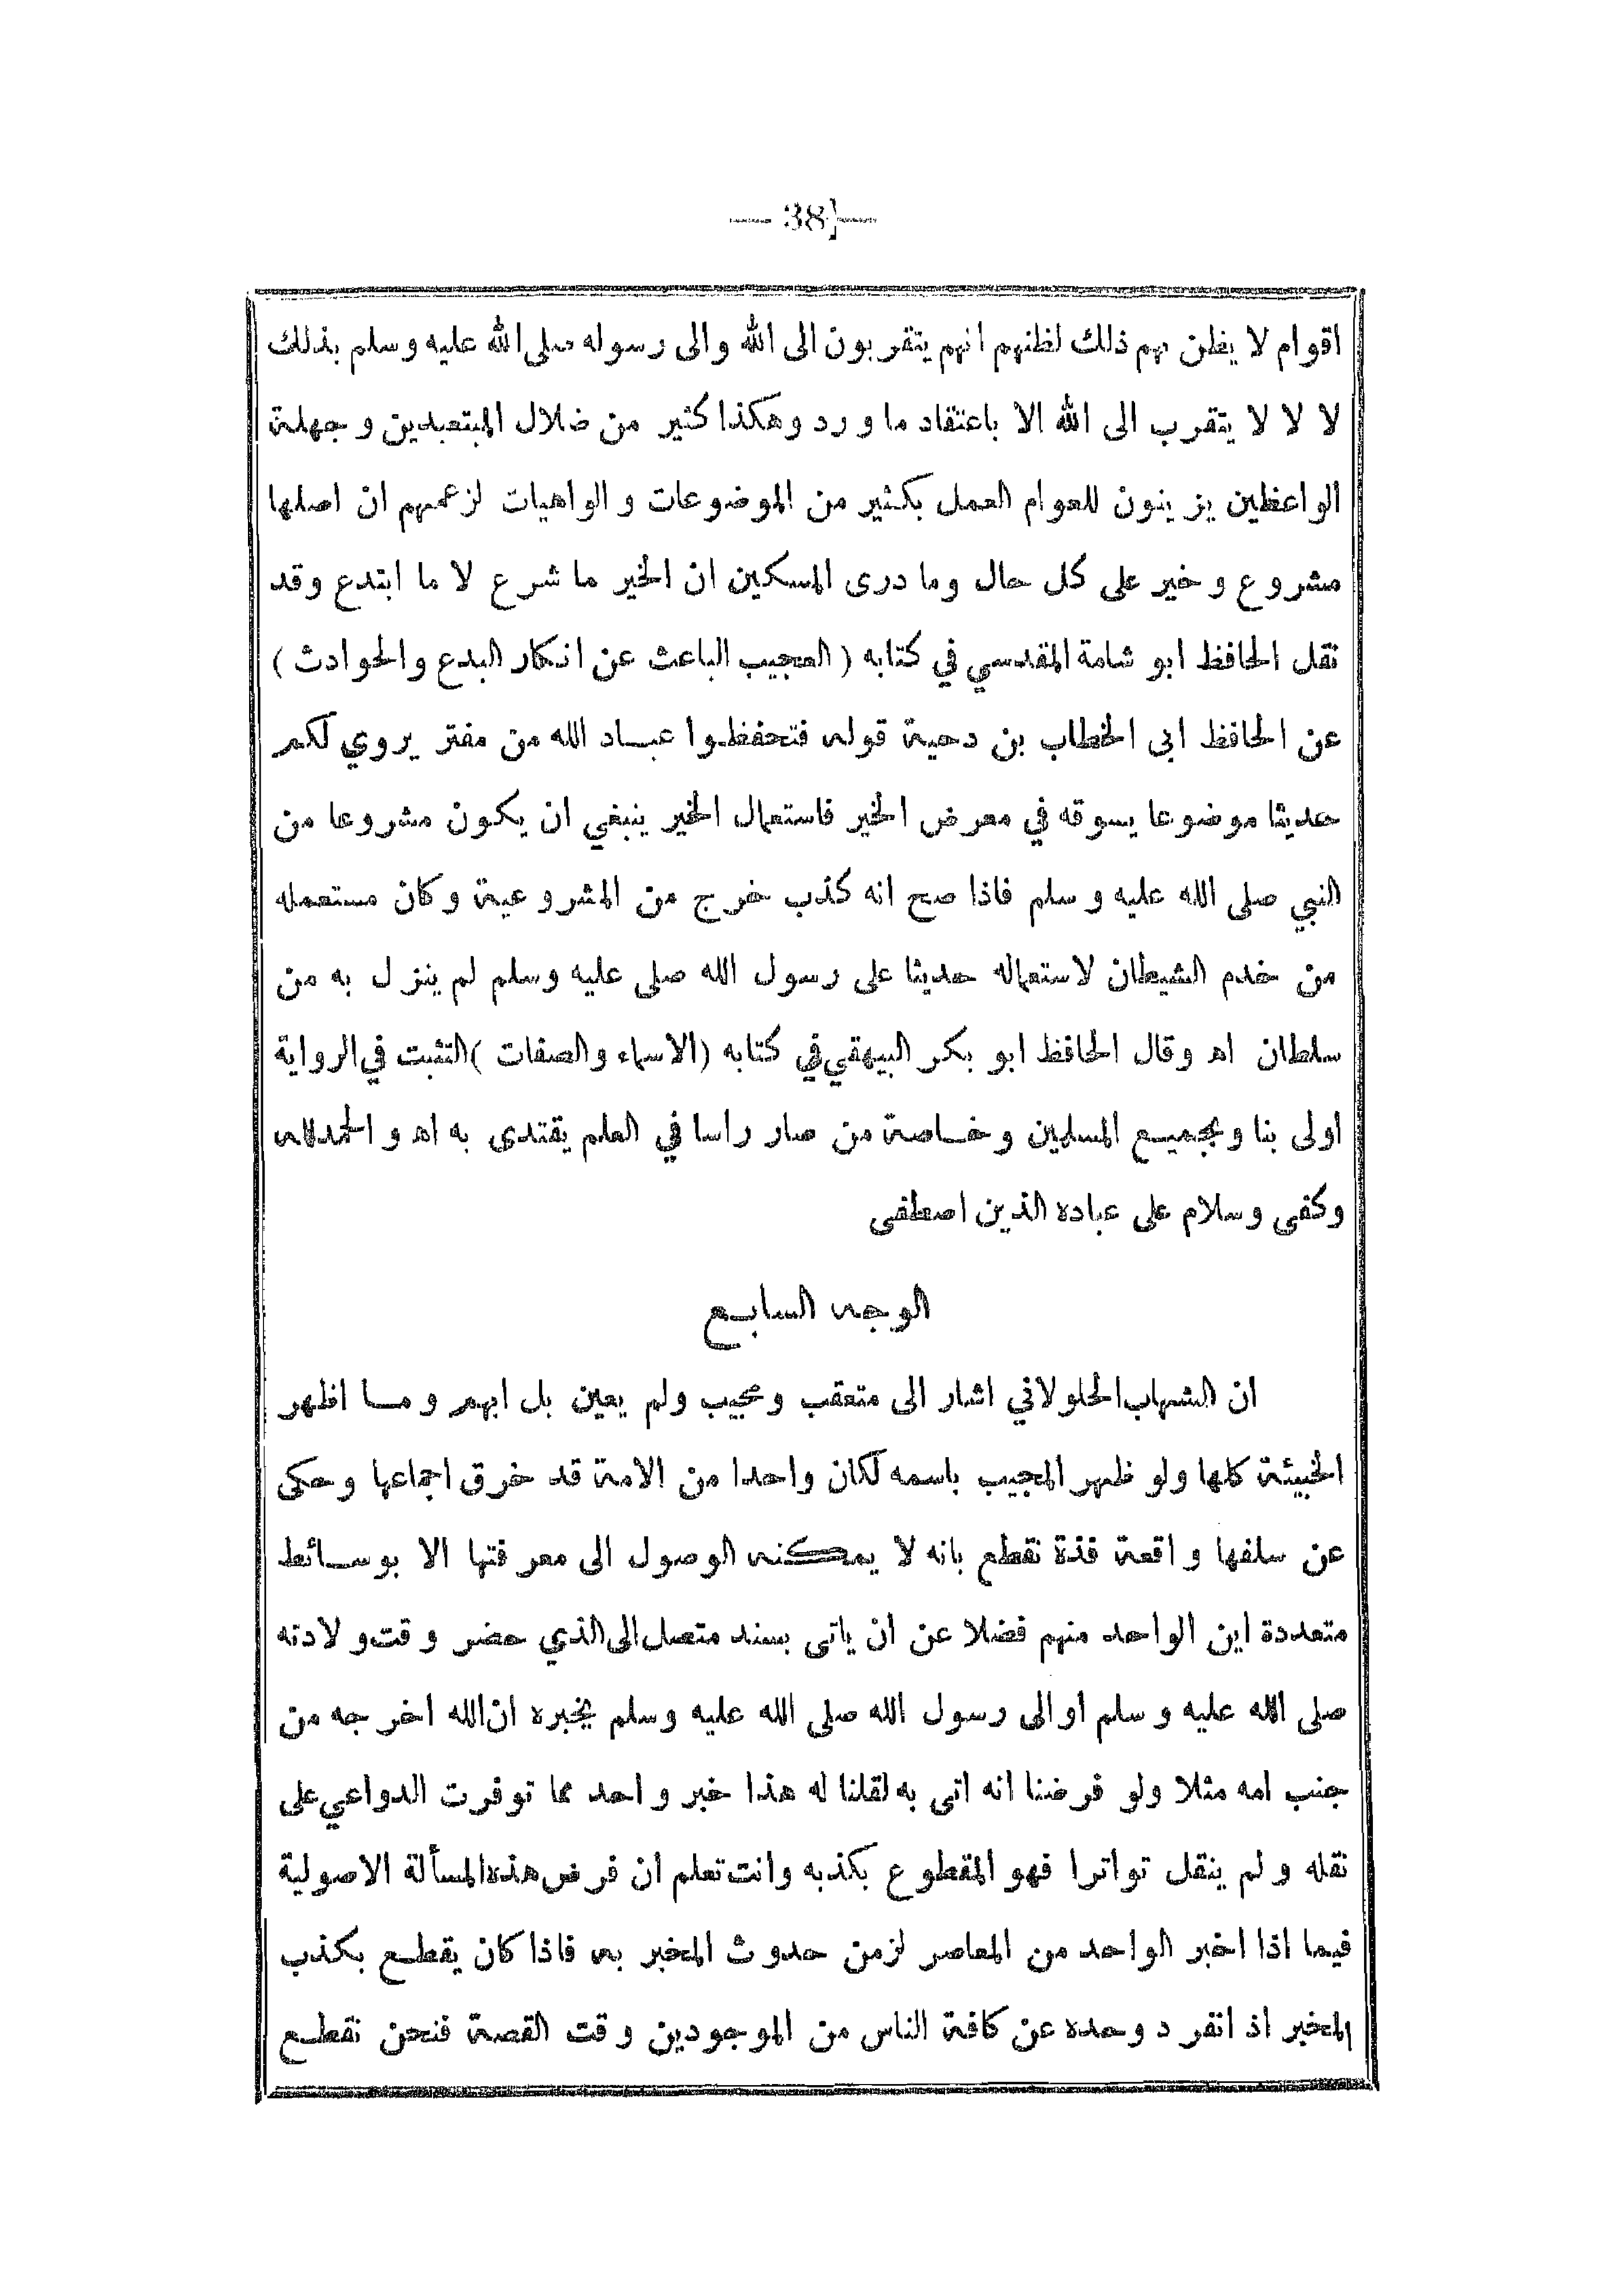 — 38 —
اقوام لا يظن بهم ذلك لظنهم انهم يتقربون الى الله والى رسوله صلى الله عليه وسلم بذلك
لا لا لا يتقرب الى الله الا باعتقاد ما ورد وهكذا كثير من ضلال المبتعبدين وجهلة
الواعظين يزينون للعوام العمل بكثير من الموضوعات والواهيات لزعمهم ان اصلها
مشروع وخير على كل حال وما درى المسكين ان الخير ما شرع لا ما ابتدع وقد
نقل الحافظ ابو شامة المقدسي في كتابه ( العجيب الباعث عن انكار البدع والحوادث )
عن الحافظ ابى الخطاب بن دحية قوله فتحفظوا عباد الله من مفتر يروي لكم
حديثا موضوعا يسوقه في معرض الخير فاستعمال الخير ينبغي ان يكون مشروعا من
النبي صلى الله عليه وسلم فاذا صح انه كذب خرج من المشروعية وكان مستعمله
من خدم الشيطان لاستعماله حديثا على رسول الله صلى عليه وسلم لم ينزل به من
سلطان اه وقال الحافظ ابو بكر البيهقي في كتابه (الاسماء والصفات )التثبت في الرواية
اولى بنا وبجميع المسلمين وخاصة من صار راسا في العلم يقتدى به اه والحمد لله
وكفى وسلام على عباده الذين اصطفى
الوجه السابع
ان الشهاب الحلولاني اشار الى متعقب ومجيب ولم يعين بل ابهم وما اظهر
الخبيئة كلها ولو ظهر المجيب باسمه لكان واحدا من الامة قد خرق اجماعها وحكى
عن سلفها واقعة فذة نقطع بانه لا يمكنه الوصول الى معرفتها الا بوسائط
متعددة اين الواحد منهم فضلا عن ان ياتى بسند متصل الى الذي حضر وقت ولادته
صلى الله عليه وسلم او الى رسول الله صلى الله عليه وسلم يخبره ان الله اخرجه من
جنب امه مثلا ولو فرضنا انه اتى به لقلنا له هذا خبر واحد مما توفرت الدواعي على
نقله ولم ينقل تواترا فهو المقطوع بكذبه وانت تعلم ان فرض هذه المسألة الاصولية
فيما اذا اخبر الواحد من المعاصر لزمن حدوث المخبر به فاذا كان يقطع بكذب
المخبر اذ انفرد وحده عن كافة الناس من الموجودين وقت القصة فنحن نقطع